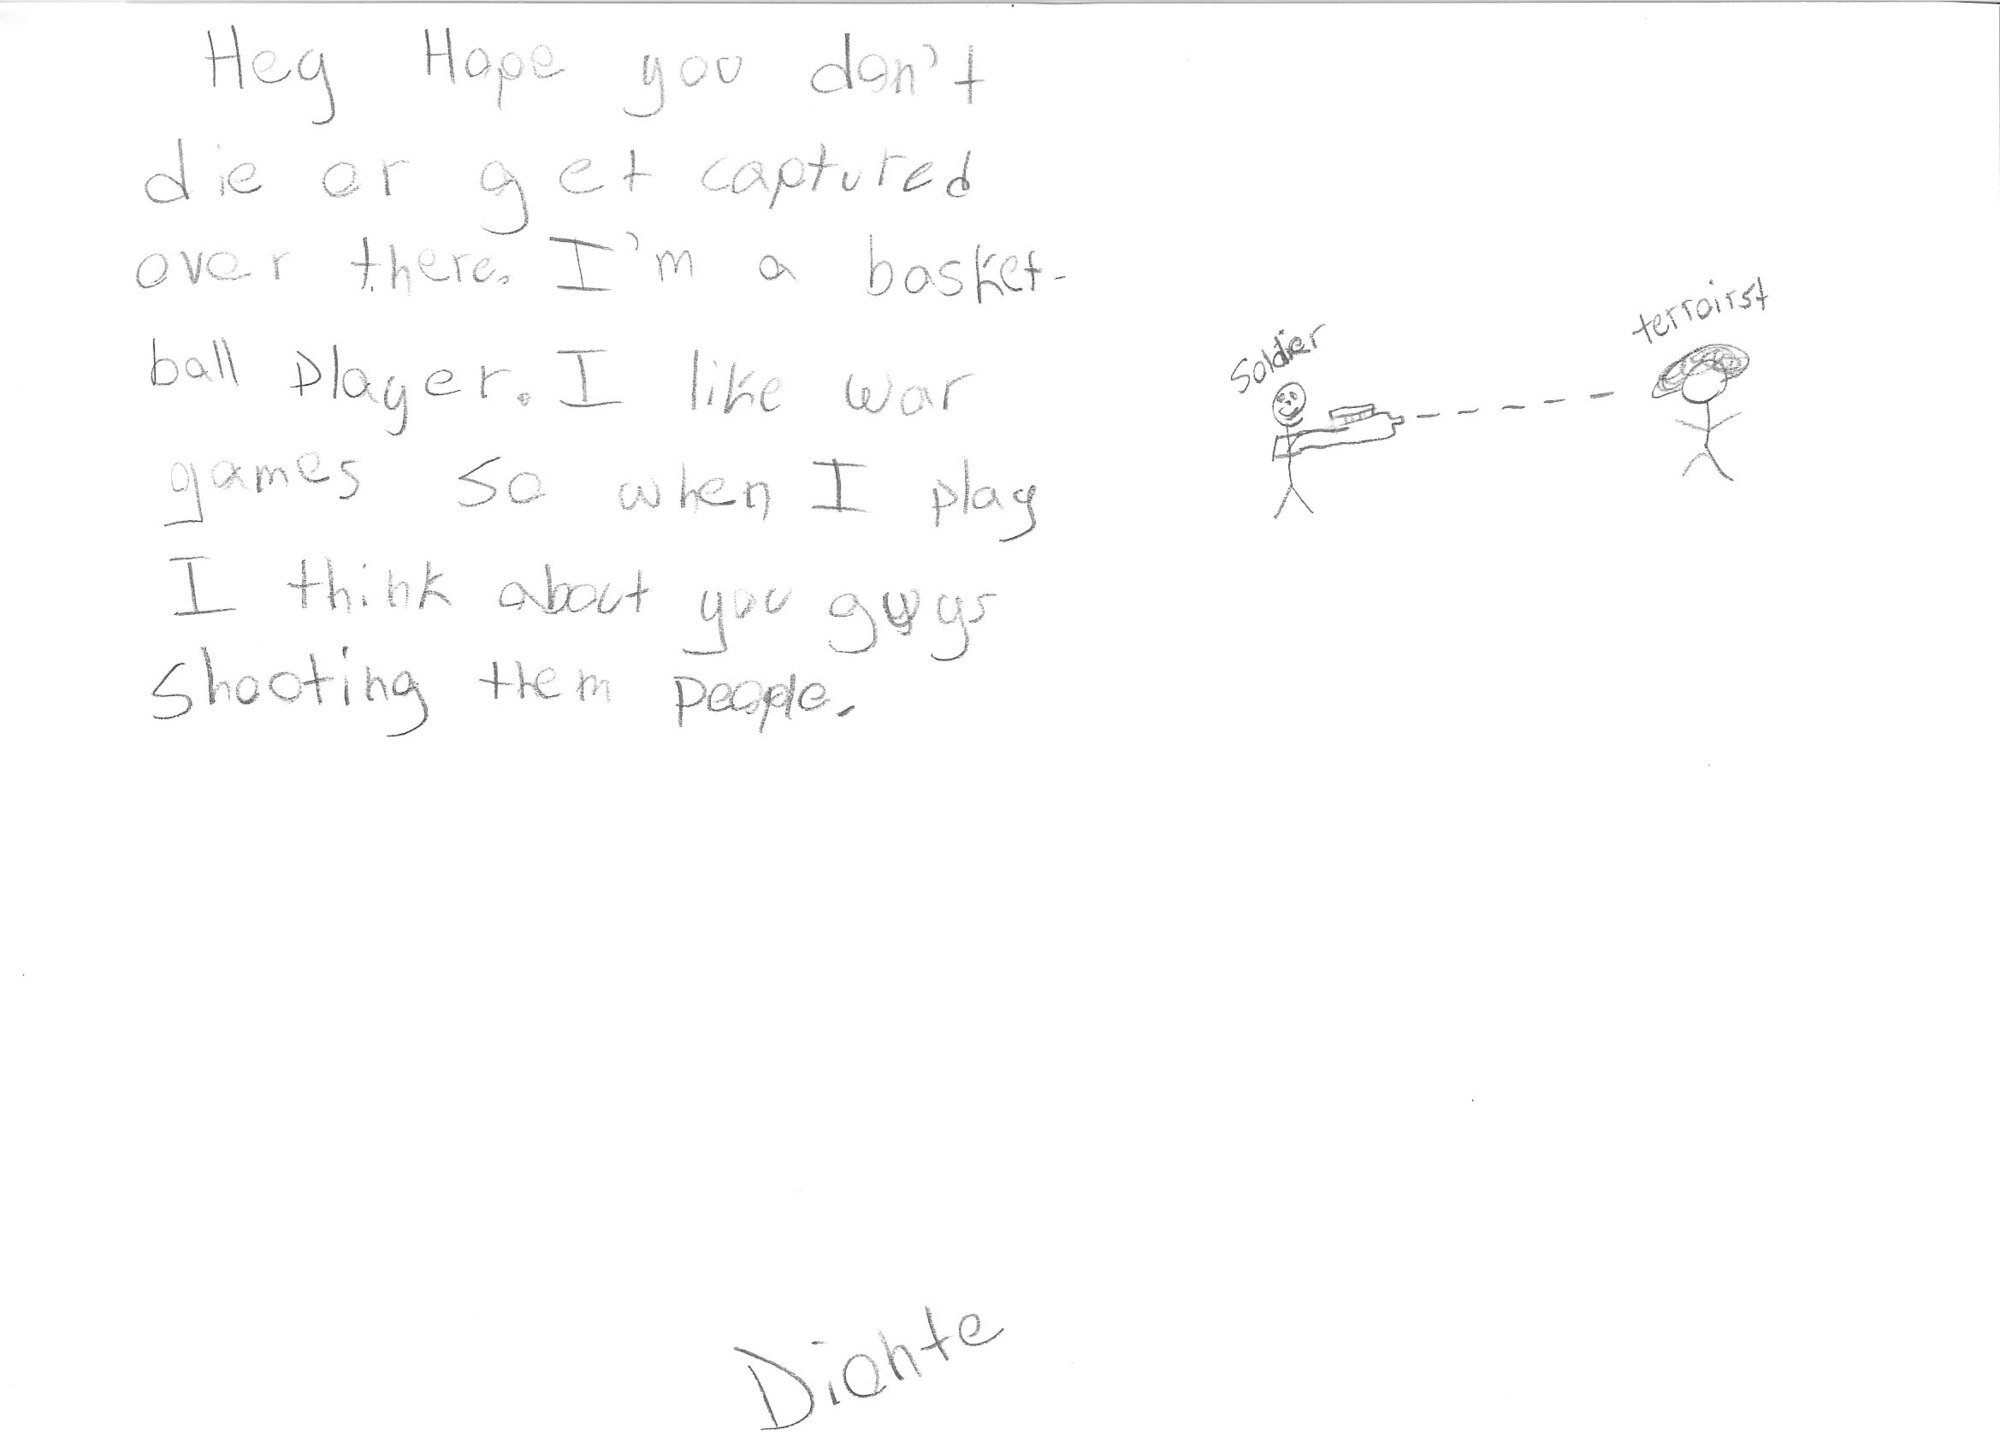 Hey Hope you don't
die or get captured
over there. I'm a basket-
ball player. I like war
games so when I play
I think about you guys
shooting them people.
Soldier
terroirst
Dionte